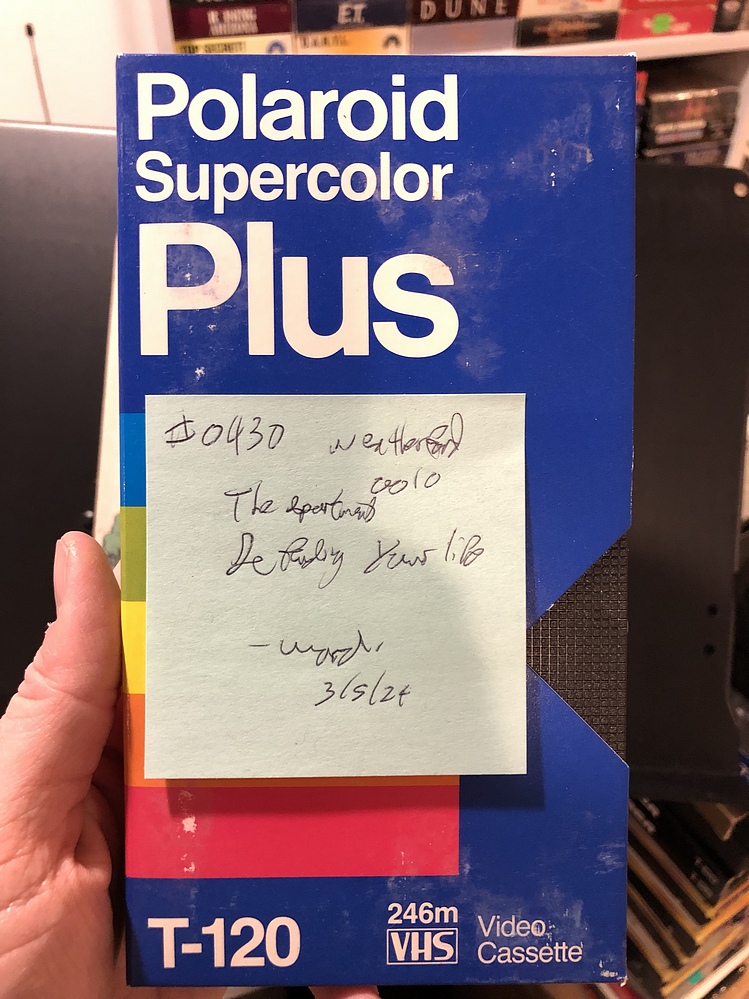 E.T.
DUNE
Polaroid
Supercolor
Plus
#0430 Weatherford
0010
The apartment
Defending Your life
3/5/24
T-120
246m
VHS
Video
Cassette